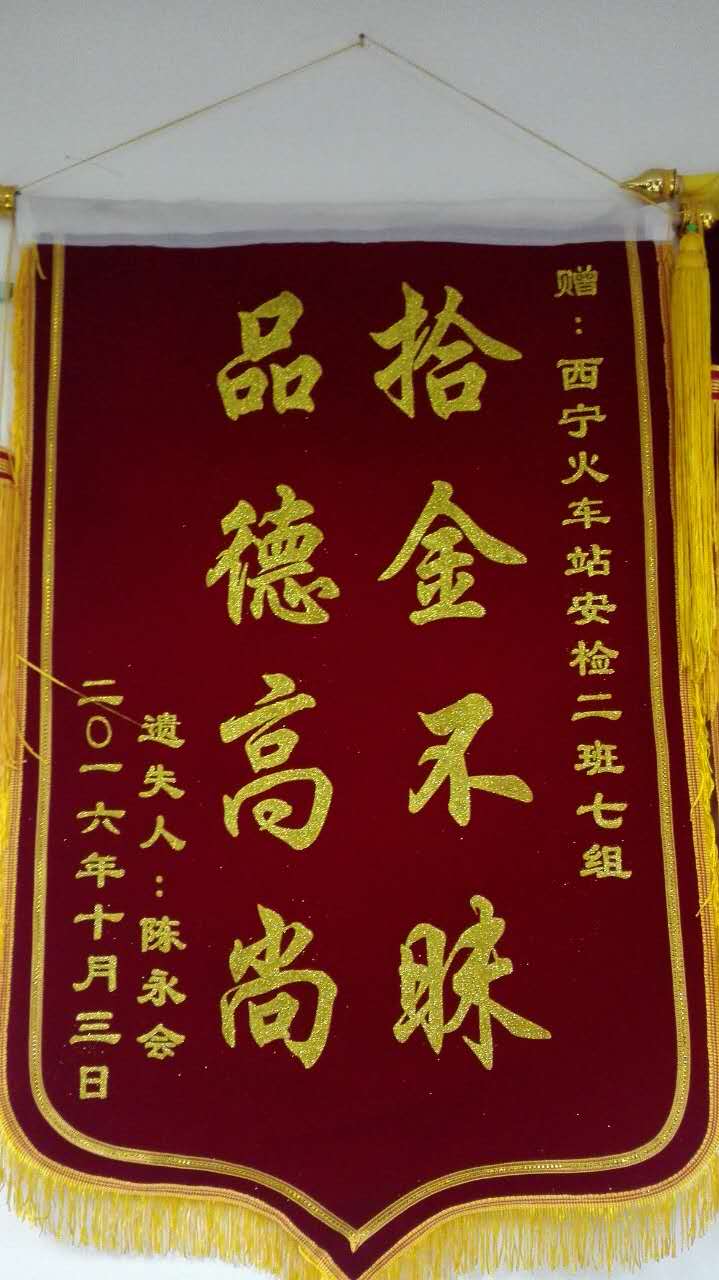 赠：西宁火车站安检二班七组
拾金不昧
品德高尚
遗失人：陈永会
二〇一六年十月三日